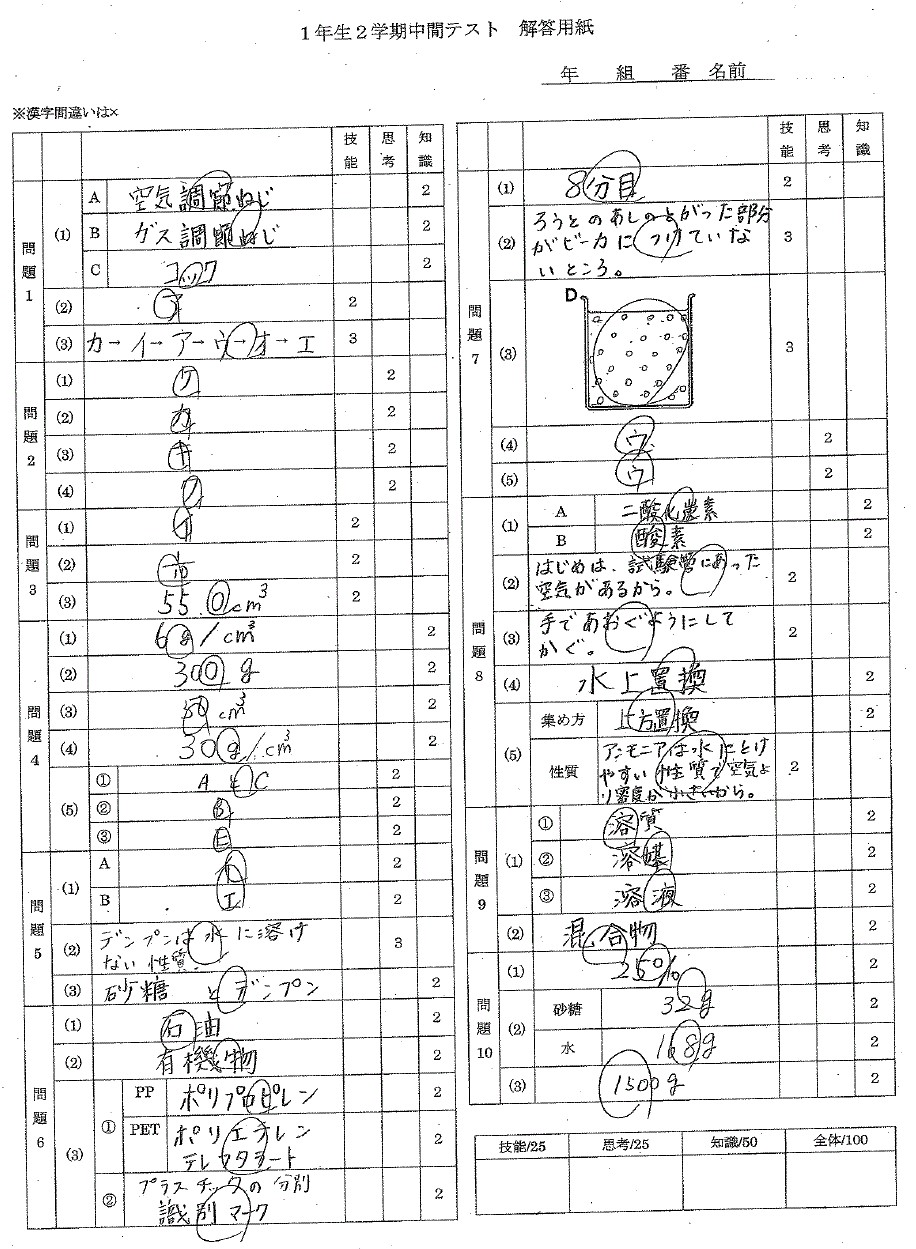 1年生2学期中間テスト 解答用紙
年 組 番 名前
※漢字間違いは×
技能 思考 知識
問題1
(1) A 空気調節ねじ 2
B ガス調節ねじ 2
C コック 2
(2) ア 2
(3) カ→イ→ア→ウ→オ→エ 3
問題2
(1) ケ 2
(2) カ 2
(3) キ 2
(4) ク 2
問題3
(1) イ 2
(2) 1/10 2
(3) 55.0cm³ 2
問題4
(1) 6g/cm³ 2
(2) 300g 2
(3) 50cm³ 2
(4) 30g/cm³ 2
(5) ① AとC 2
② B 2
③ E 2
問題5
(1) A 2
B エ 2
(2) デンプンは水に溶け
ない性質. 3
(3) 砂糖とデンプン 2
問題6
(1) 石油 2
(2) 有機物 2
(3) ① PP ポリプロピレン 2
PET ポリエチレン
テレフタラート 2
② プラスチックの分別
識別マーク 2
技能 思考 知識
問題7
(1) 8分目 2
(2) ろうとのあしのとがった部分
がビーカに つけていな
いところ。 3
(3) D 3
(4) ウ 2
(5) ウ 2
問題8
(1) A 二酸化炭素 2
B 酸素 2
(2) はじめは、試験管にあった
空気があるから。 2
(3) 手であおぐようにして
かぐ。 2
(4) 水上置換 2
(5) 集め方 上方置換 2
性質 アンモニアは水にとけ
やすい性質で空気よ
り密度が小さいから。 2
問題9
(1) ① 溶質 2
② 溶媒 2
③ 溶液 2
(2) 混合物 2
問題10
(1) 25% 2
(2) 砂糖 32g 2
水 168g 2
(3) 1500g 2
技能/25 思考/25 知識/50 全体/100